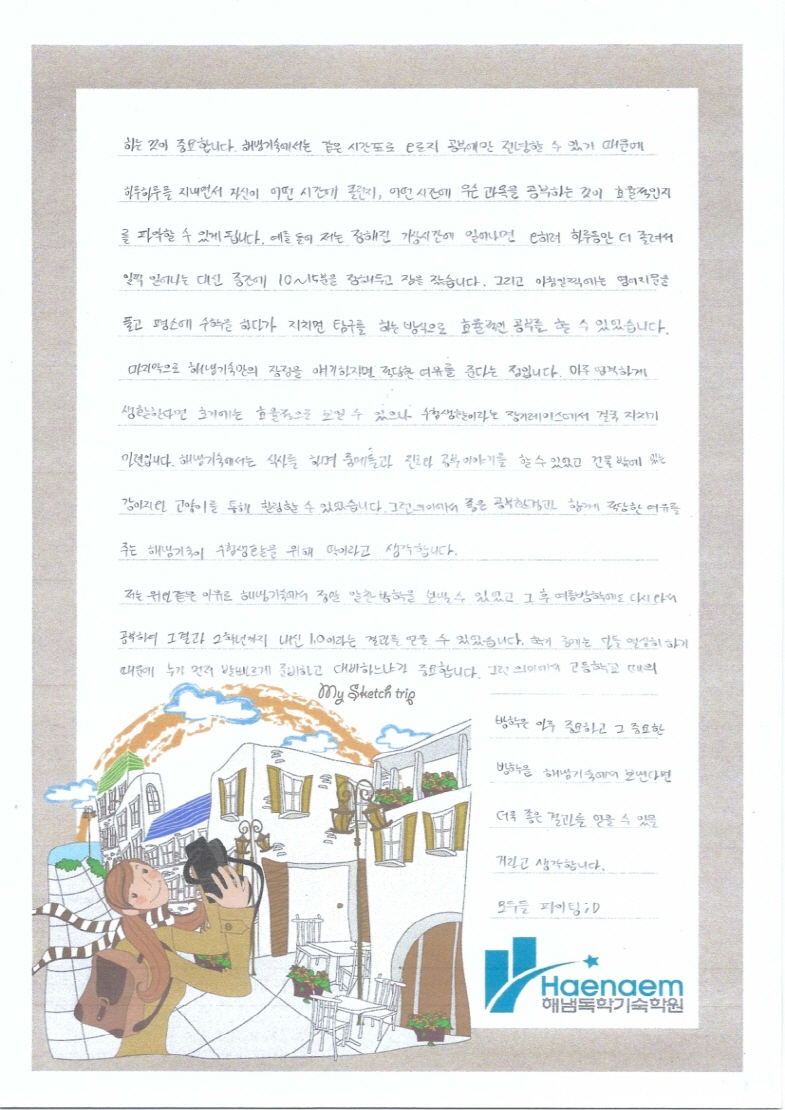 하는 것이 중요합니다. 해냄기숙에서는 같은 시간표로 오로지 공부에만 전념할 수 있기 때문에
하루하루를 지내면서 자신이 어떤 시간에 졸린지, 어떤 시간에 무슨 과목을 공부하는 것이 효율적인지
를 파악할 수 있게 됩니다. 예를 들어 저는 정해진 기상시간에 일어나면 오히려 하루동안 더 졸려서
일찍 일어나는 대신 중간에 10~15분을 정해두고 잠을 잤습니다. 그리고 아침일찍에는 영어지문을
풀고 평소에 수학을 하다가 지치면 탐구를 하는 방식으로 효율적인 공부를 할 수 있었습니다.
마지막으로 해냄기숙만의 장점을 얘기하자면 적당한 여유를 준다는 점입니다. 마주 엄격하게
생활한다면 초기에는 효율적으로 보일 수 있으나 수험생활이라는 장기레이스에서 결국 지치기
마련입니다. 해냄기숙에서는 식사를 하며 룸메들과 진로와 공부이야기를 할 수 있었고 건물 밖에 있는
강아지와 고양이를 통해 힐링할 수 있었습니다. 그런 의미에서 좋은 공부환경과 함께 적당한 여유를
주는 해냄기숙이 수험생들을 위해 딱이라고 생각합니다.
저는 위와 같은 이유로 해냄기숙에서 정말 알찬 방학을 보낼 수 있었고 그 후 여름방학에도 다시 와서
공부하여 그 결과 2학년까지 내신 1.0이라는 결과를 얻을 수 있었습니다. 학기 중에는 모두들 열심히 하기
때문에 누가 먼저 발빠르게 준비하고 대비하느냐가 중요합니다. 그런 의미에서 고등학교 때의
My Sketch trip
방학은 아주 중요하고 그 중요한
방학을 해냄기숙에서 보낸다면
더욱 좋은 결과를 얻을 수 있을
거라고 생각합니다.
모두들 파이팅 ;D
Haenaem
해냄독학기숙학원